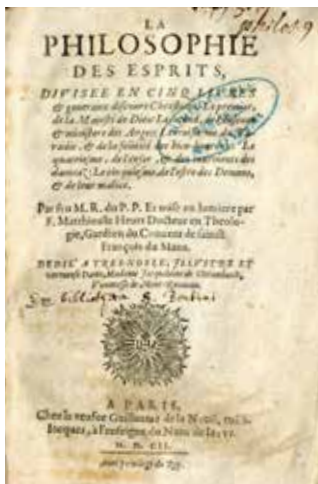 philos
LA
PHILOSOPHIE
DES ESPRITS,
DIVISEE EN CINQ LIVRES
& generaux discours Chrestiens. Le premier,
de la Maiesté de Dieu. Le second, de l'essence
& ministere des Anges. Le troisiesme du
radis, & de la felicité des bien-heureux. Le
quatriesme, de l'enfer, & des tourments des
damnez. Le cinquiesme de l'estre des Demons,
& de leur malice.
Par feu M. R. du P. P. Et mise en lumiere par
F. Matthieu le Heurt Docteur en Theolo-
gie, Gardien du Conuent de sainct
François du Mans.
DEDIÉ A TRES-NOBLE, ILLVSTRE ET
vertueuse Dame, Madame Iacqueline de
A PARIS,
Chez la veufue Guillaume de la Nouë, ruë S.
Iacques, à l'enseigne du Nom de Iesus.
M. DCII.
Auec priuilege du Roy.